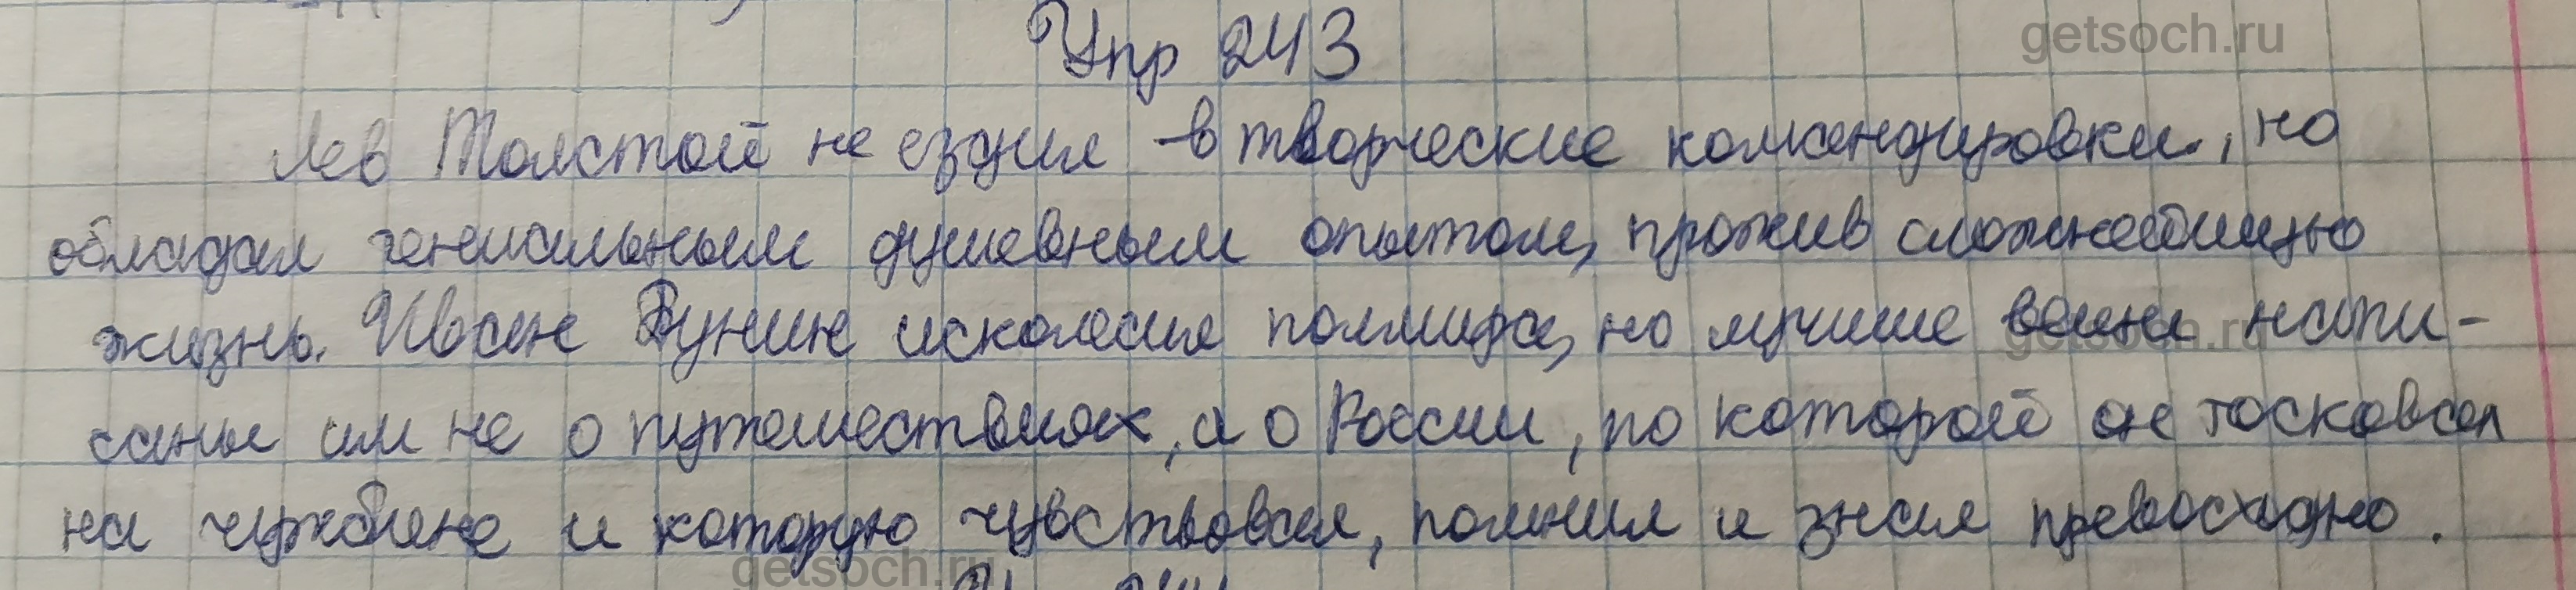 getsoch.ru
Упр 243
Лев Толстой не ездил в творческие командировки, но
обладал гениальным душевным опытом, прожив сложнейшую
жизнь. Иван Бунин исколесил полмира, но лучшие вещи напи-
getsoch.ru
саны им не о путешествиях, а о России, по которой он тосковал
на чужбине и которую чувствовал, помнил и знал превосходно.
getsoch.ru